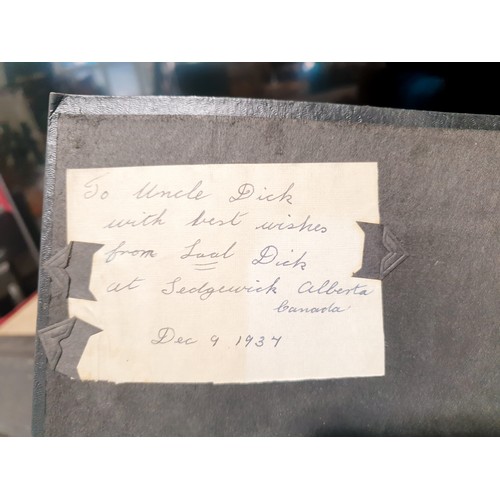 To Uncle Dick
with best wishes
from Laal Dick
at Sedgewick Alberta
Canada
Dec 9 1934